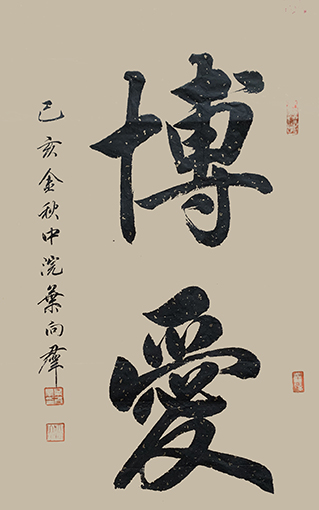 博愛
己亥金秋中浣葉向群